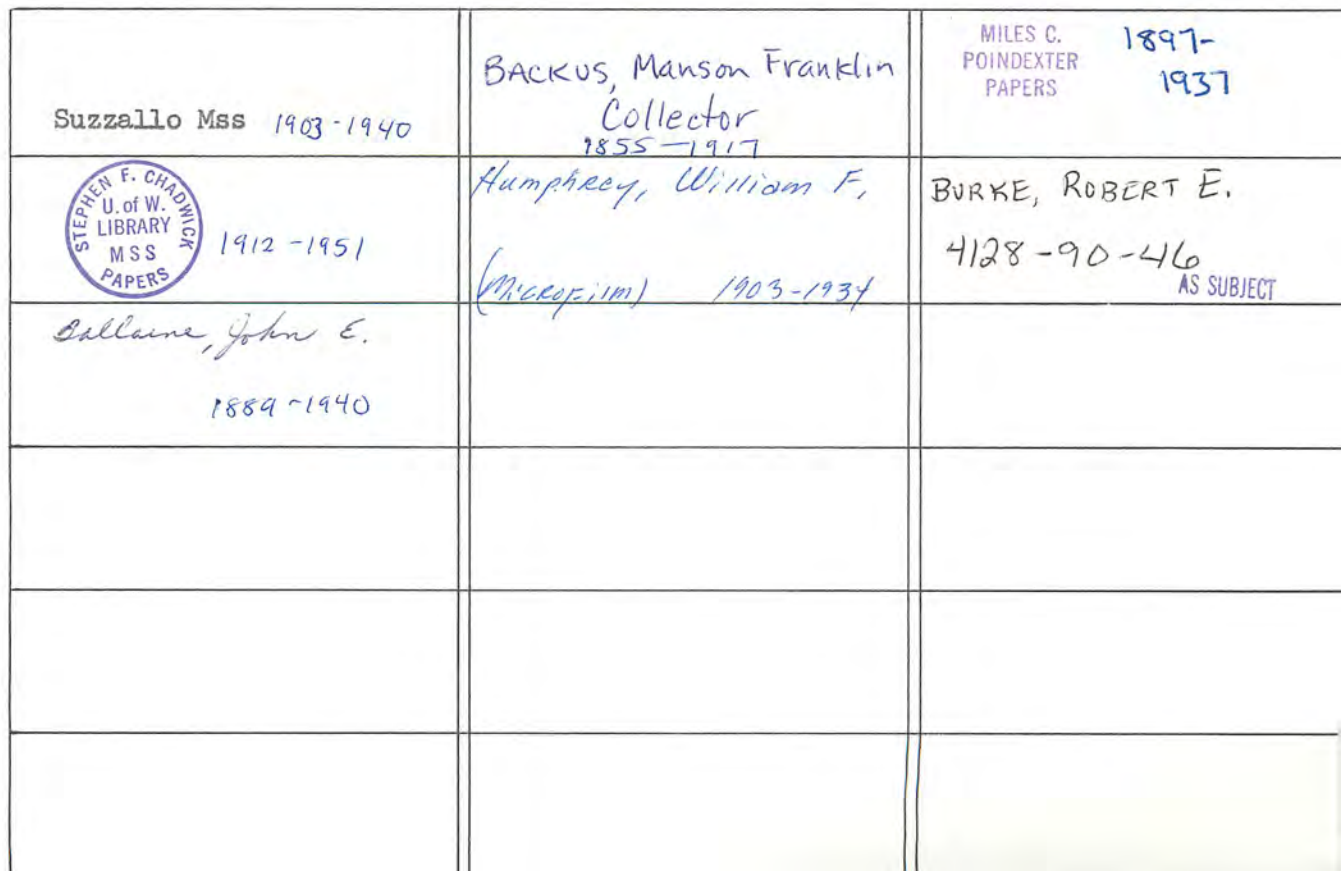 Suzzallo Mss 1903-1940
BACKUS, Manson Franklin
Collector
1855-1917
MILES C.
POINDEXTER
PAPERS
1897-
1937
STEPHEN F. CHADWICK
U. of W.
LIBRARY
MSS
PAPERS
1912-1951
Humphrey, William F,
(Microfilm) 1903-1934
BURKE, ROBERT E.
4128-90-46
AS SUBJECT
Ballaine, John E.
1889-1940